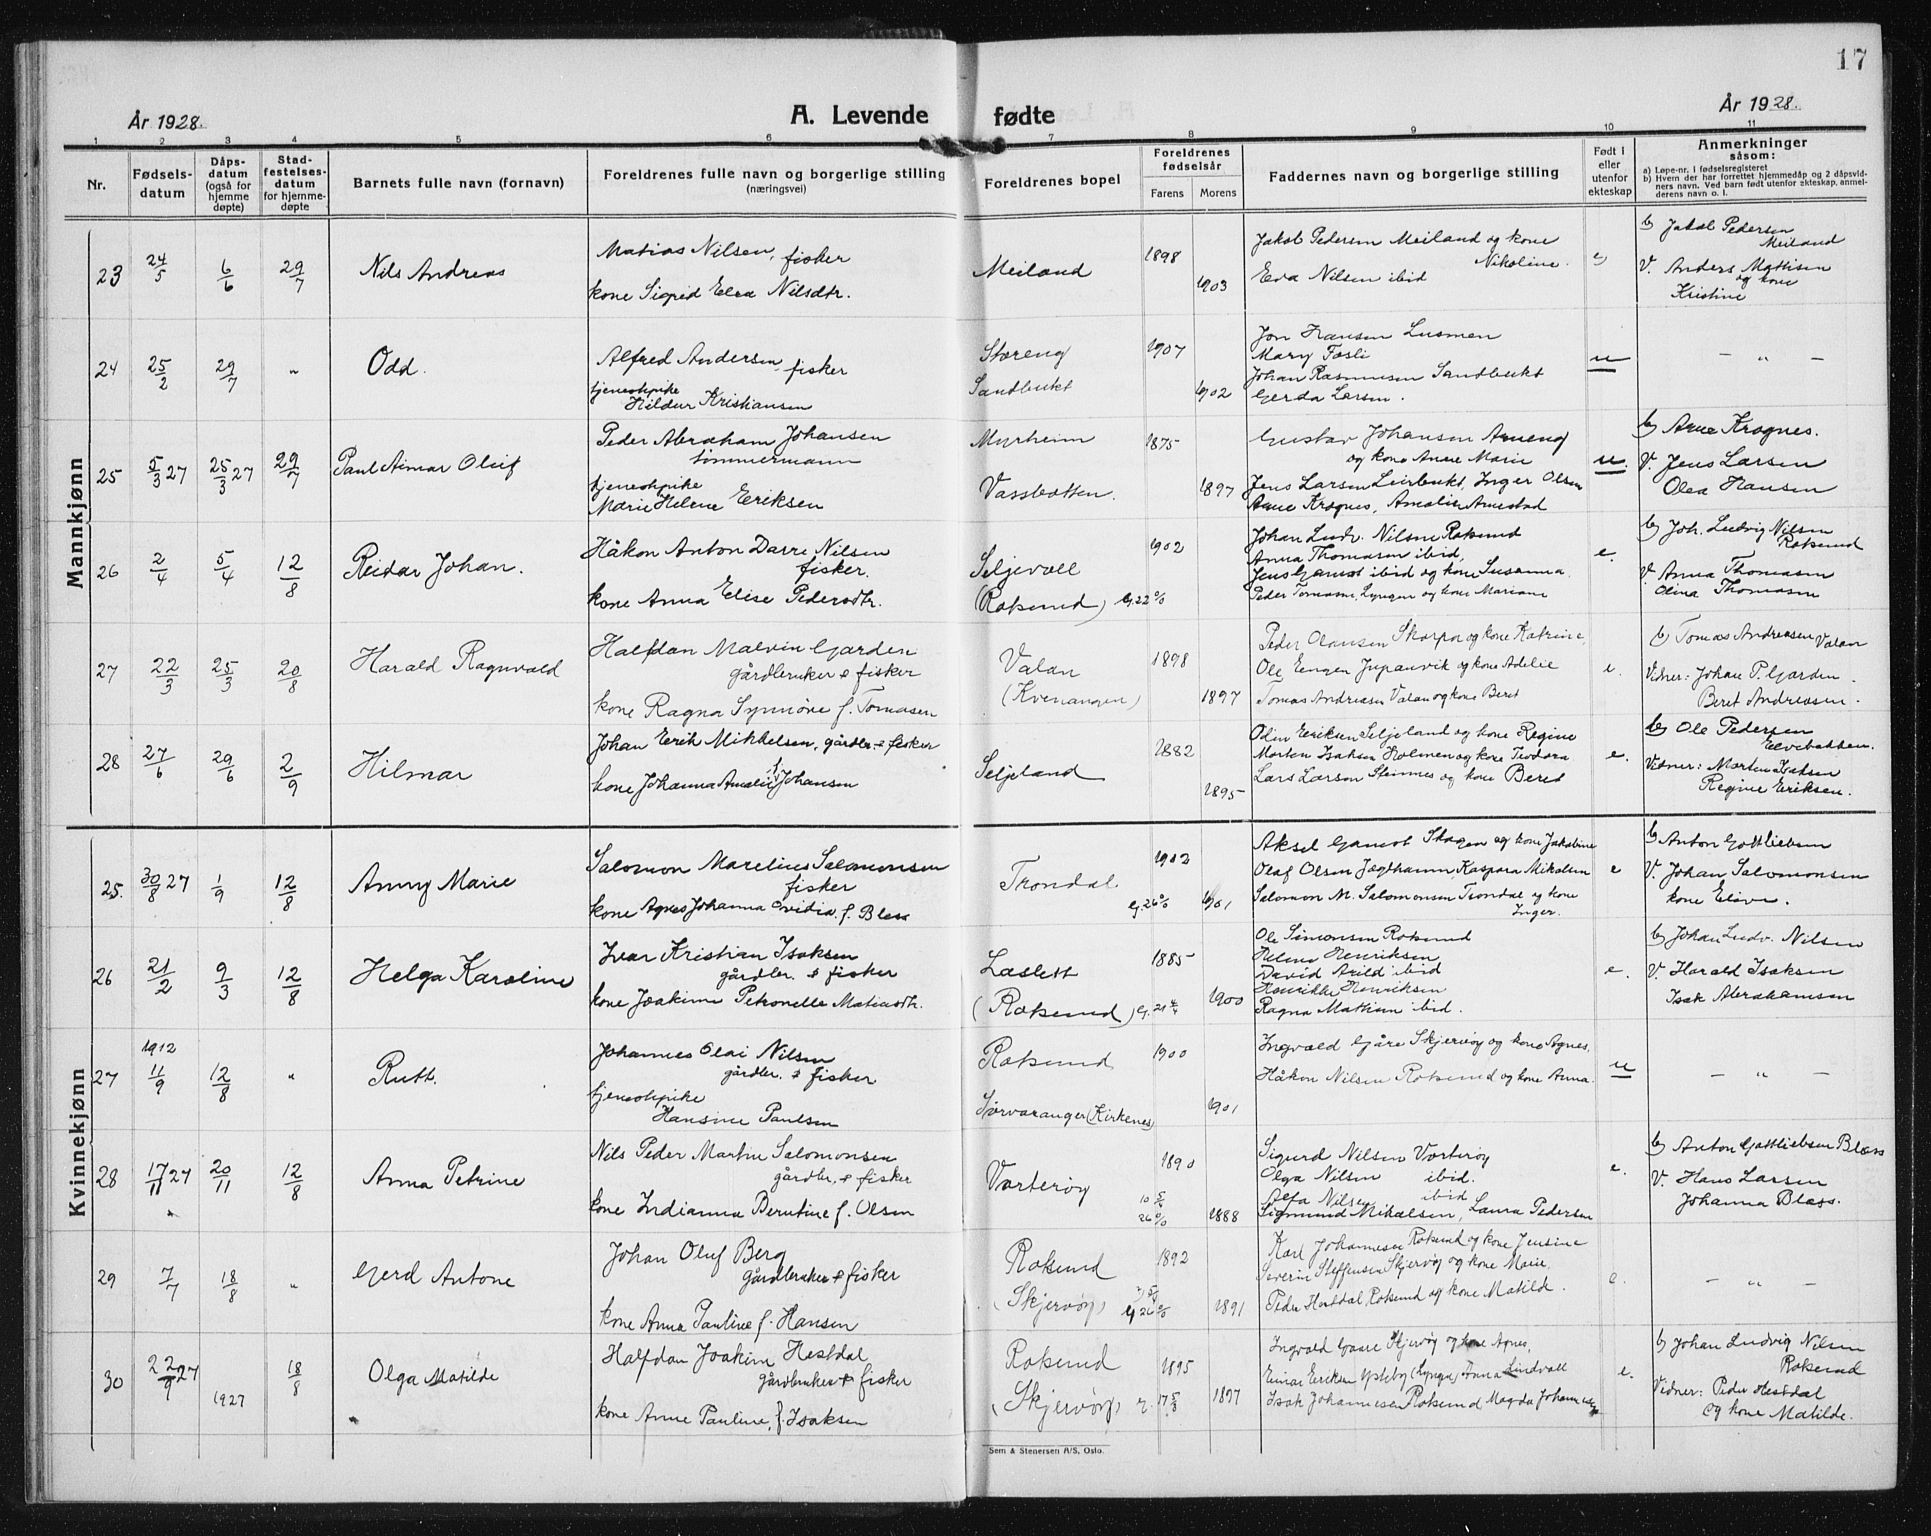 17
År 1928.
A. Levende fødte
År 1928.
1 2 3 4 5 6 7 8 9 10 11
Nr.
Fødsels-
datum
Dåps-
datum
(også for
hjemme
døpte)
Stad-
festelses-
datum
for hjemme-
døpte
Barnets fulle navn (fornavn)
Foreldrenes fulle navn og borgerlige stilling
(næringsvei)
Foreldrenes bopel
Foreldrenes
fødselsår
Farens Morens
Faddernes navn og borgerlige stilling
Født i
eller
utenfor
ekteskap
Anmerkninger
såsom:
a) Løpe-nr. i fødselsregisteret
b) Hvem der har forrettet hjemmedåp og 2 dåpsvid-
ners navn. Ved barn født utenfor ekteskap, anmel-
derens navn o. l.
Mannkjønn
23 24/5 6/6 29/7 Nils Andreas
Matias Nilsen, fisker
kone Sigrid Elea Nilsdtr.
Meiland 1898
1903
Jakob Pedersen Meiland og kone
Nikoline.
Eva Nilsen ibid
e
b) Jakob Pedersen
Meiland
V. Anders Mattisen
og kone
Kristine
24 25/2 29/7 " Odd.
Alfred Andersen, fisker
tjenestepike
Hildur Kristiansen
Storeng 1907
Sandbukt 1902
Jon Hansen Lusmen
Mary Fosli
Johan Rasmussen Sandbukt
Gerda Larsen.
u
— " —
25 5/3 27 25/3 27 29/7 Paul Aimar Oluf
Peder Abraham Johansen
tømmermann
tjenestepike
Marie Helene Eriksen
Myrheim 1875
Vassbotten. 1897
Gustav Johansen Arneng
og kone Anne Marie
Jens Larsen Leirbukt, Inger Olsen
Arne Krognes, Amalie Arnestad
u.
b) Arne Krognes.
V. Jens Larsen
Olea Hansen
26 2/4 5/4 12/8 Reidar Johan.
Håkon Anton Darre Nilsen
fisker.
kone Anna Elise Pedersdtr.
Seljevoll 1902
(Roksund) G. 22
Johan Ludv. Nilsen Roksund
Anna Thomasen ibid,
Jens Gamst ibid og kone Susanna.
Peder Tomasen, Lyngen og kone Mariane
e.
b) Joh. Ludvig Nilsen
Roksund
V. Anna Thomasen
Olina Thomasen
27 22/3 25/3 20/8 Harald Ragnvald
Halfdan Malvin Gården
gårdbruker & fisker
kone Ragna Synnøve f. Tomasen
Valan 1898
(Kvenangen) 1897
Peder Olausen Skorpa og kone Katrine,
Ole Eengen Jupanvik og kone Adelie
Tomas Andreasen Valan og kone Beret
e.
b) Tomas Andreasen Valan
Vidner: Johan P. Garden.
Beret Andreasen.
28 27/6 29/6 2/9 Hilmar
Johan Erik Mikkelsen, gårdbr. & fisker
kone Johanna Amalie f. Johansen
Seljeland 1882
1895
Odin Eriksen Seljeland og kone Regine
Morten Isaksen Holmen og kone Teodora
Lars Larsen Steinnes og kone Beret
e.
b) Ole Pedersen
Elvebakken.
Vidner: Morten Isaksen
Regine Eriksen.
Kvinnekjønn
25. 30/8 27 1/9 12/8 Anny Marie
Salomon Marelius Salomonsen
fisker
kone Agnes Johanna Ovidia f. Bless
Trondal 1902
G. 26 1901
Aksel Gamst Skogen og kone Jakobine
Olaf Olsen Jægthamn, Kaspara Mikalsen
Salomon M. Salomonsen Trondal og kone
Inger.
e
b) Anton Gottliebsen
V. Johan Salomonsen
kone Elive.
26 21/2 9/3 12/8 Helga Karoline
Ivar Kristian Isaksen
gårdbr. & fisker
kone Joakime Petronelle Matiasdtr.
Laslett 1885
(Roksund) G. 21 1900
Ole Simonsen Roksund
Helene Henriksen
David Arild ibid
Henrikke Henriksen
Ragna Mathisen ibid.
e.
b) Johan Ludv. Nilsen
V. Harald Isaksen
Isak Abrahamsen
27 1912 11/9 12/8 " Rutt.
Johannes Olai Nilsen
gårdbr. & fisker
tjenestepike
Hansine Paulsen
Roksund 1900
Sørvaranger (Kirkenes) 1901
Ingvald Gåre Skjervøy og kone Agnes,
Håkon Nilsen Roksund og kone Anna.
u
— " —
28 17/11 27 20/11 12/8 Anna Petrine
Nils Peder Martin Salomonsen
gårdbr. & fisker
kone Indianna Berntine f. Olsen
Vorterøy 1890
1888
Sigurd Nilsen Vorterøy
Olga Nilsen ibid.
Alfa Nilsen ibid
Sigmund Mikalsen, Laura Pedersen
e.
b) Anton Gottliebsen Blæss
V. Hans Larsen
Johanna Blæss.
29 7/7 18/8 " Gerd Antone
Johan Oluf Berg
gårdbruker & fisker
kone Anna Pauline f. Hansen
Roksund 1892
(Skjervøy) G. 26 1891
Karl Johannesen Roksund og kone Jensine
Severin Steffensen Skjervøy og kone Marie,
Peder Hestdal Roksund og kone Matilde.
e.
— " —
30 22/9 27 1927 18/8 Olga Matilde
Halfdan Joakim Hestdal
gårdbruker & fisker
kone Anne Pauline, f. Isaksen
Roksund 1895
(Skjervøy) 1897
Ingvald Gaare Skjervøy og kone Agnes,
Einar Eriksen Ysteby (Lyngen) Anna Lindvall
Isak Johannesen Roksund Magda Johannesen
e.
b) Johan Ludvig Nilsen
Roksund
Vidner: Peder Hestdal
og kone Matilde.
Sem & Stenersen A/S, Oslo.